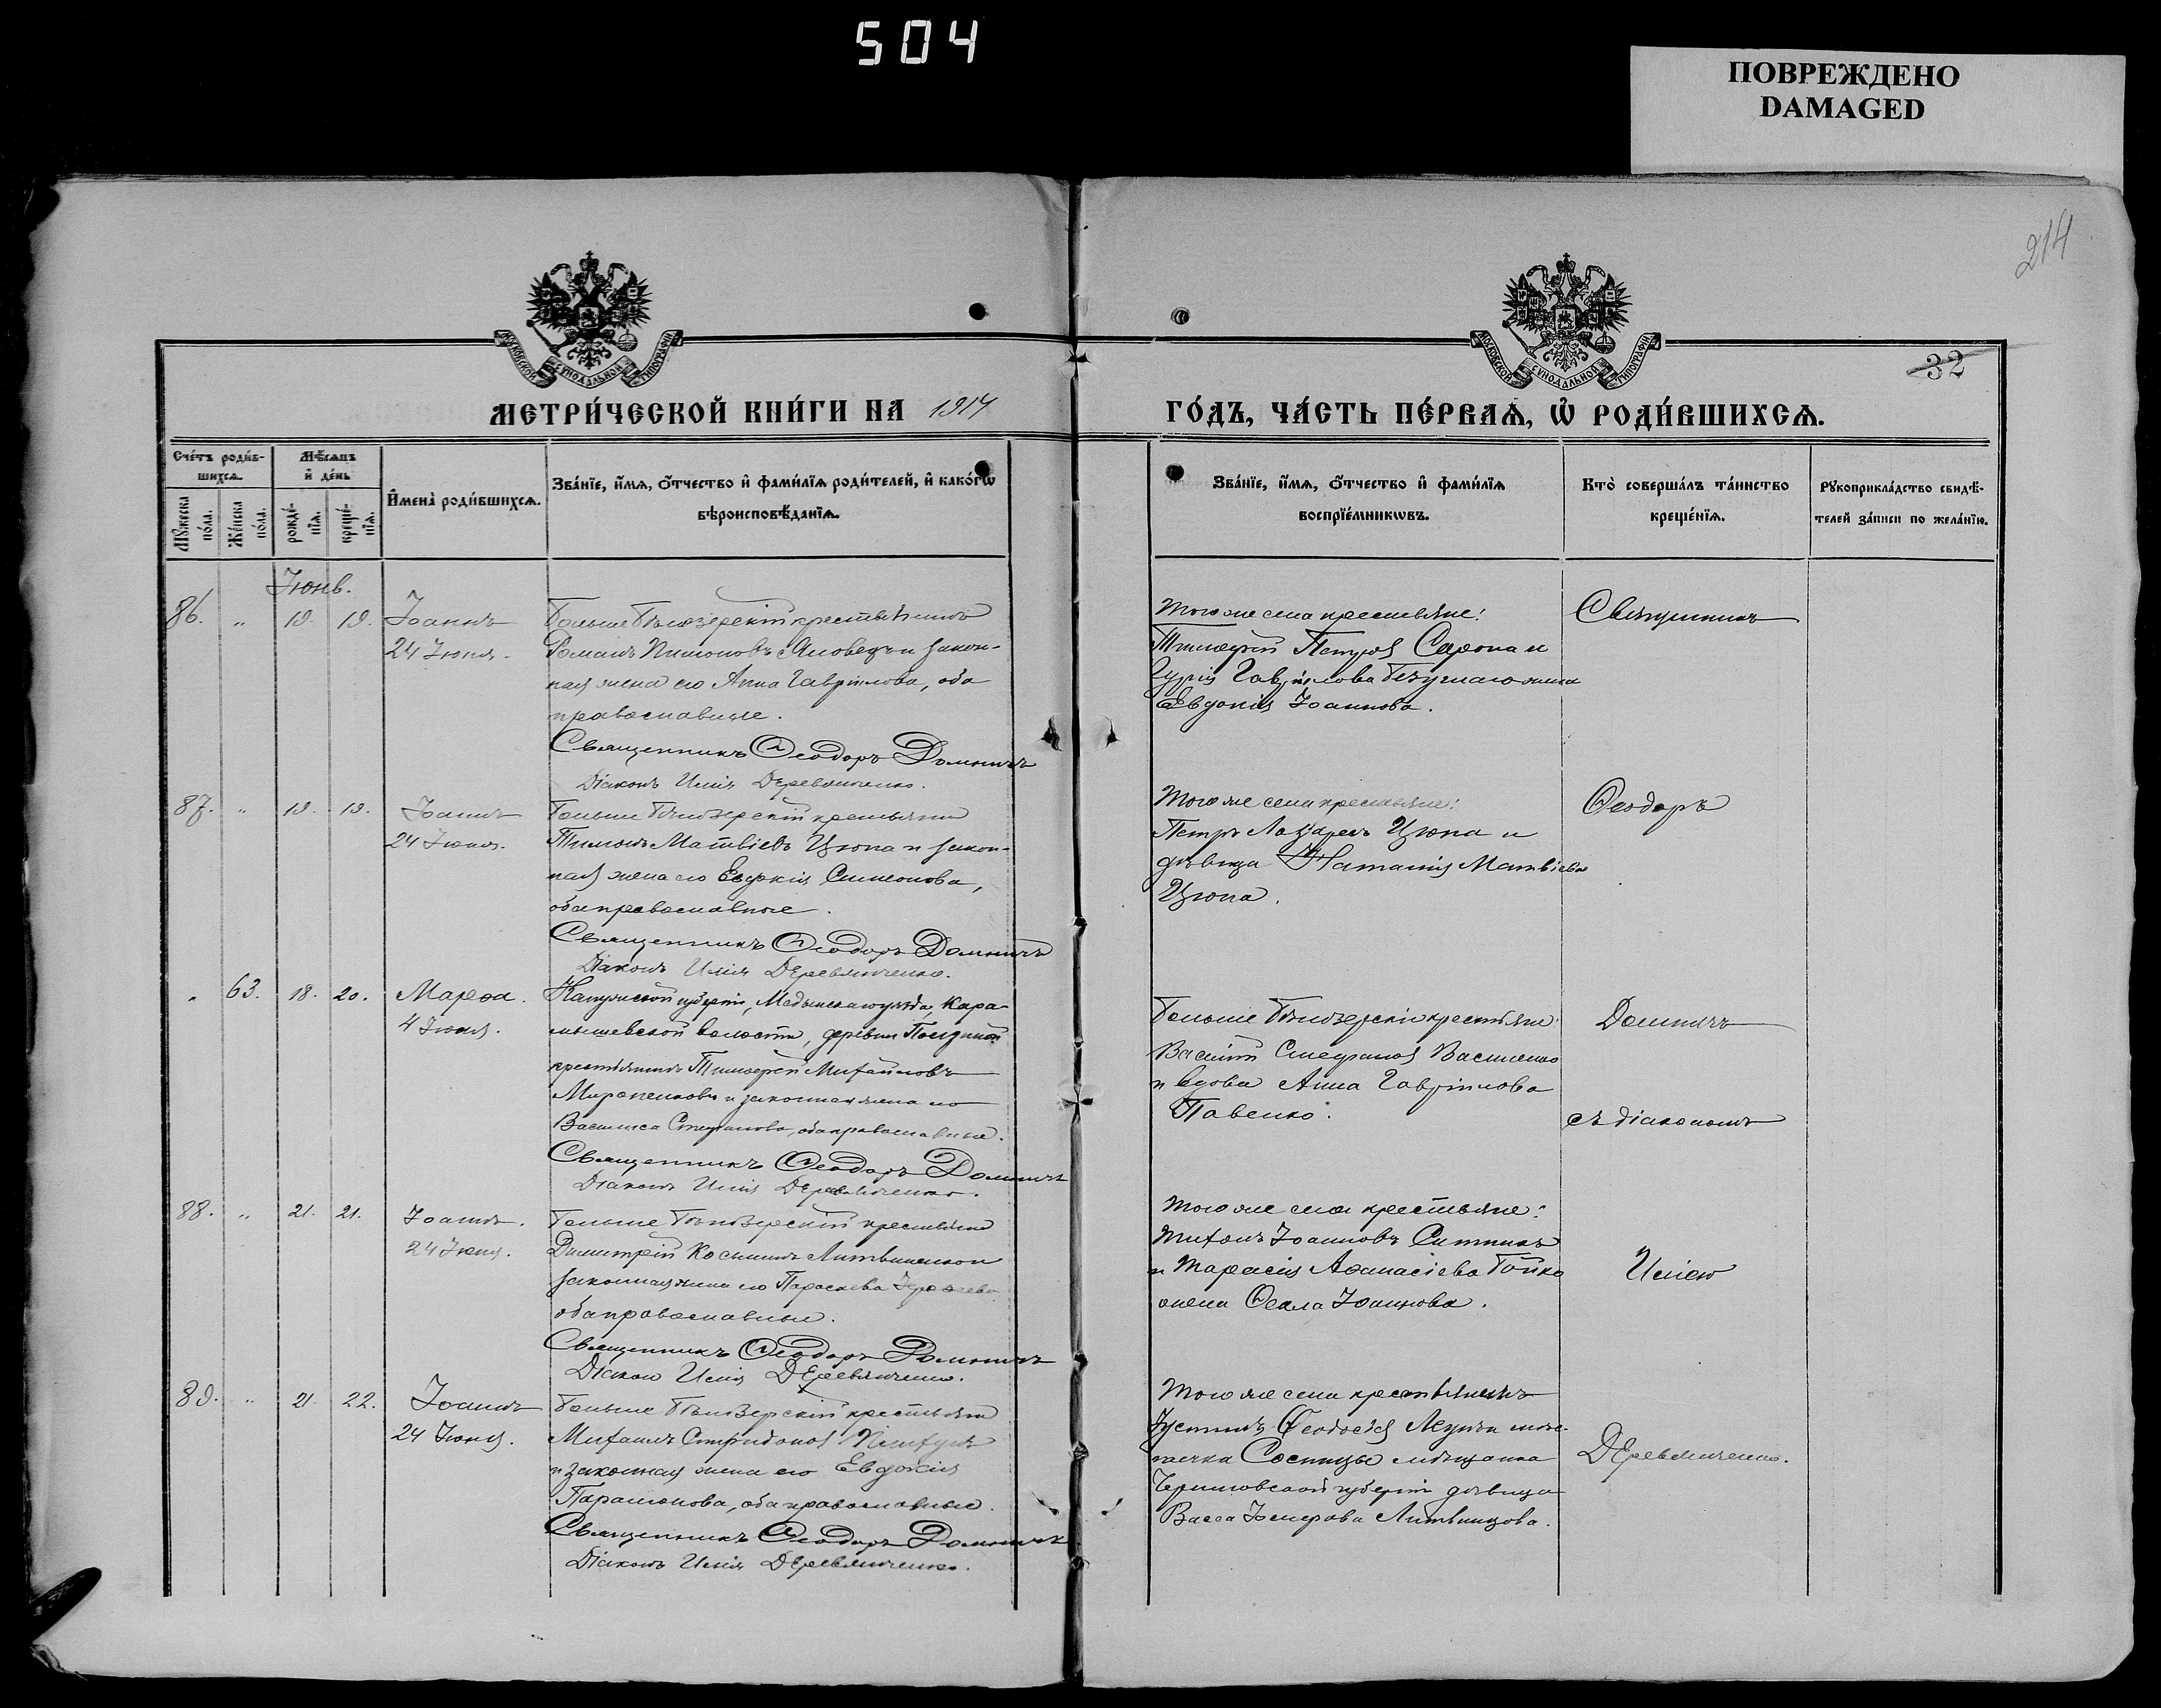 504
ПОВРЕЖДЕНО
DAMAGED
214
МОСКОВСКОЙ СѴНОДАЛЬНОЙ ТИПОГРАФІИ
МОСКОВСКОЙ СѴНОДАЛЬНОЙ ТИПОГРАФІИ
32
МЕТРИ́ЧЕСКОЙ КНИ́ГИ НА 1914
ГО́ДЪ, ЧА́СТЬ ПЕ́РВАѦ, Ѡ РОДИ́ВШИХСѦ.
Сче́тъ роди́вшихсѧ.
Мѣ́сѧцъ и де́нь
Мꙋ́жеска по́ла.
Же́нска по́ла.
рожде́нїѧ.
креще́нїѧ.
Имена̀ роди́вшихсѧ.
Зва́нїе, и́мѧ, ѻ́тчество и фами́лїѧ роди́телей, и како́гѡ
вѣроисповѣ́данїѧ.
Зва́нїе, и́мѧ, ѻ́тчество и фами́лїѧ
воспрїе́мникѡвъ.
Кто̀ соверша́лъ та́инство
креще́нїѧ.
Рꙋкоприкла́дство свидѣ́-
телей за́писи по жела́нїю.
Іюнь.
86. " 19. 19. Іоаннъ
24 Іюня.
Больше Бѣлозерскій крестьянинъ
Романъ Пимоновъ Яловецъ и закон-
ная жена его Анна Гавріилова, оба
православные.
Священникъ Ѳеодоръ Домничъ
Діаконъ Илія Деревянченко.
Того же села крестьяне:
Тимофей Петров Сарона и
Гурія Гавріилова жена
Евдокія Іоаннова.
Священникъ
87. " 19. 19. Іоаннъ
24 Іюня.
Больше Бѣлозерскій крестьянин
Тимонъ Матвіевъ Цюпа и закон-
ная жена его Евдокія Симеонова,
оба православные.
Священникъ Ѳеодоръ Домничъ
Діаконъ Илія Деревянченко.
Того же села крестьяне:
Петръ Лазаревъ Цюпа и
дѣвица Наталія Матвіева
Цюпа.
Ѳеодоръ
" 63. 18. 20. Марѳа.
4 Іюля.
Калужской губерніи, Медынскаго уѣзда, Кара-
мышевской волости, деревни
крестьянинъ Тимофей Михайловъ
Миропенковъ и законная жена его
Василиса Стефанова, оба православные.
Священникъ Ѳеодоръ Домничъ
Діаконъ Илія Деревянченко.
Больше Бѣлозерскіе крестьяне:
Василій Стефанов Василенко
и вдова Анна Гавріилова
Павенко.
Домничъ
съ діакономъ
88. " 21. 21. Іоаннъ.
24 Іюня.
Больше Бѣлозерскій крестьянин
Димитрій Косьминъ Литвиненко и
законная жена его Параскева
оба православные.
Священникъ Ѳеодоръ Домничъ
Діакон Илія Деревянченко.
Того же села крестьяне:
Тихонъ Іоанновъ Ситникъ
и Тарасія Аѳанасіева Бойко
жена Ѳекла Іоаннова.
Иліею
89. " 21. 22. Іоаннъ
24 Іюня.
Больше Бѣлозерскій крестьянин
Михаилъ Спиридонов
и законная жена его Евдокія
Парамонова, оба православные.
Священникъ Ѳеодоръ Домничъ
Діаконъ Илія Деревянченко.
Того же села крестьянинъ
Іустинъ и мѣс-
течка Сосницы мѣщанка
Черниговской губерніи дѣвица
Васса Литвинцова.
Деревянченко.